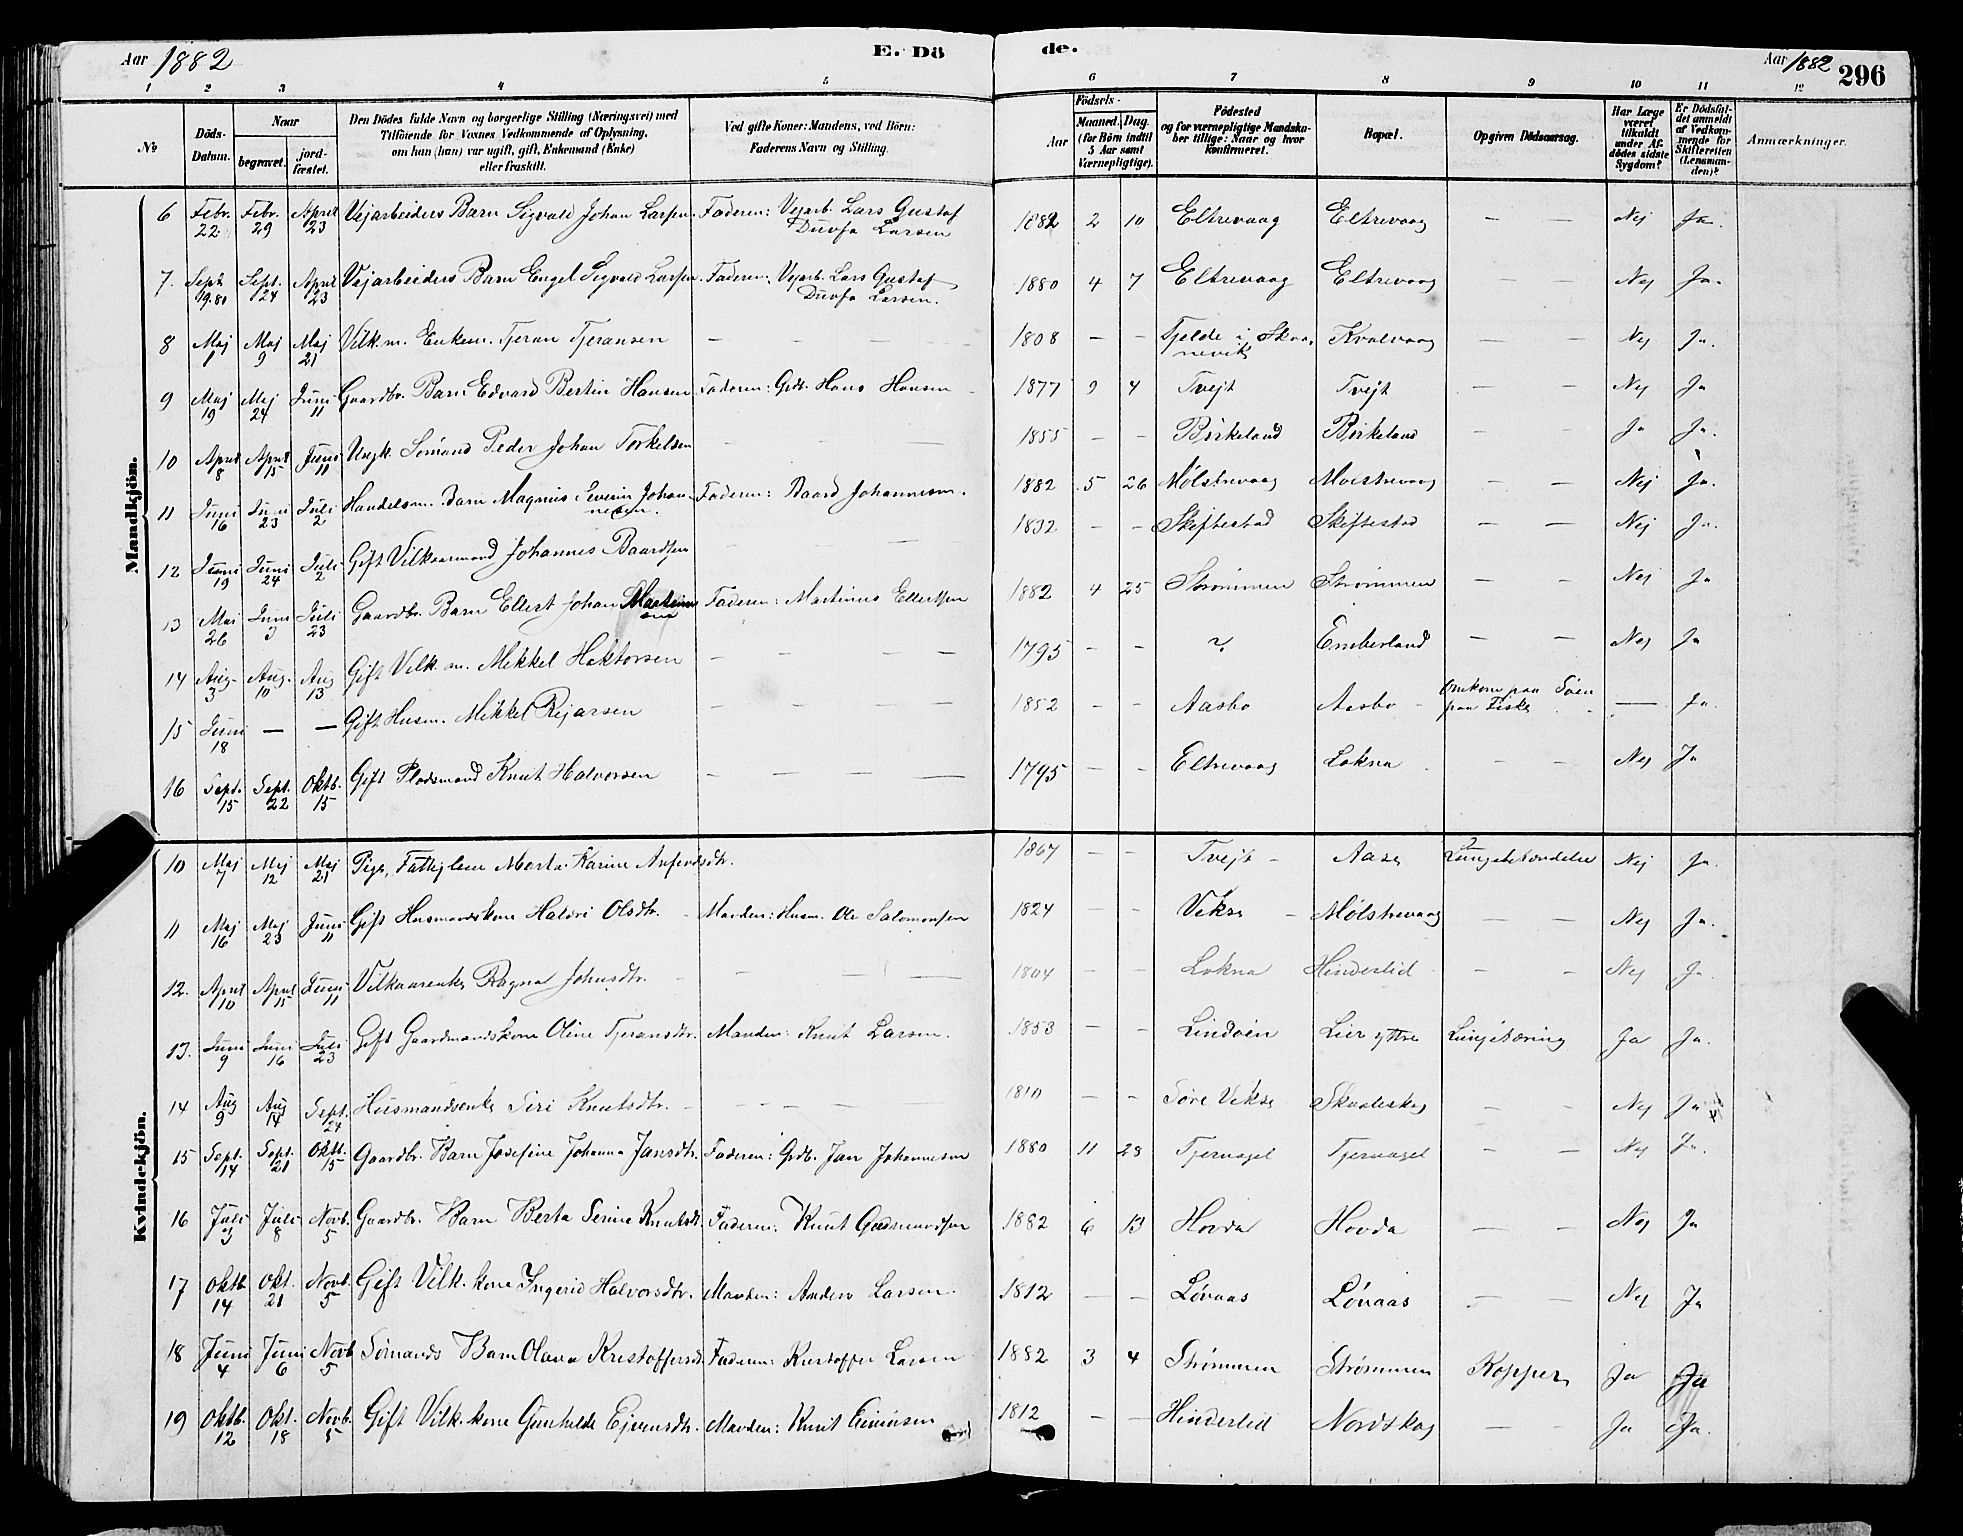 Aar 1882
E. Dö de.
Aar 1882 296
1 2 3 4 5 6 7 8 9 10 11 12
No
Döds-Datum.
Naar begravet. jordfæstet.
Den Dödes fulde Navn og borgerlige Stilling (Næringsvei) med
Tilföiende for Voxnes Vedkommende af Oplysning,
om han (hun) var ugift, gift, Enkemand (Enke)
eller fraskilt.
Ved gifte Koner: Mandens, ved Börn:
Faderens Navn og Stilling.
Födsels-
Aar
Maaned. Dag.
(for Börn indtil
5 Aar samt
Værnepligtige).
Födested
og for værnepligtige Mandskaber tillige: Naar og hvor
konfirmeret.
Bopæl.
Opgiven Dödsaarsag.
Har Læge
været
tilkaldt
under Afdödes sidste
Sygdom?
Er Dödsfaldet anmeldt
af Vedkommende for
Skifteretten
(Lensmanden)?
Anmærkninger.
Mandkjön.
6 Febr. 22 Febr. 29 April 23 Vejarbeiders Barn Sigvald Johan Larsen. Faderen: Vejarb. Lars Gustaf Duvfa Larsen 1882 2 10 Eltrevaag Eltrevaag — — Nej Ja.
7. Sept. 19.80 Sept. 24 April 23 Vejarbeiders Barn Engel Sigvald Larsen. Faderen: Vejarb. Lars Gustaf Duvfa Larsen. 1880 4 7 Eltrevaag Eltrevaag — — Nej Ja.
8 Maj 1 Maj 9 Maj 21 Vilk.m. Enkem. Tjeran Tjeransen — — — — 1808 — — Tjelde i Skaanevik Kvalvaag — — Nej Ja.
9 Maj 19 Maj 24 Juni 11 Gaardbr. Barn Edvard Bertin Hansen Faderen: Gdb. Hans Hansen 1877 9 4 Tvejt Tvejt — — Nej Ja
10 April 8 April 15 Juni 11 Ungk. Sømand Peder Johan Torkelsen — — — 1855 — — Birkeland Birkeland — — Ja Ja.
11 Juni 16 Juni 23 Juli 2 Handelsm. Barn Magnus Severin Johannesen. Faderen: Baard Johannesen. 1882 5 26 Mølstrevaag Mølstrevaag — — Nej Ja.
12 Juni 19 Juni 24 Juli 2 Gift Vilkaarmand Johannes Baardsen — — — 1832 — — Skiftestad Skiftestad — — Nej Ja.
13 Mai 26 Juni 3 Juli 23 Gaardbr. Barn Ellert Johan Martinusen Faderen: Martinus Ellertsen 1882 4 25 Strømmen Strømmen — — Nej Ja
14 Aug. 3 Aug. 10 Aug 13 Gift Vilk.m. Mikkel Haktorsen — — — — 1795 — — ? Emberland — — Nej Ja
15 Juni 18 — — Gift Husm. Mikkel Rejarsen — — — — 1852 — — Aasbo Aasbo Omkom paa Søen paa Fiske — Ja.
16 Sept. 15 Sept. 22 Oktb. 15 Gift Pladsmand Knut Halvorsen — — — — 1795 — — Eltrevaag Lokna — — Nej Ja
Kvindekjön.
10 Maj 7 Maj 12 Maj 21 Pige, Fattiglem Marta Karine Anfindsdtr. 1867 — — Tvejt Aase Lungebetændelse Nej Ja.
11 Maj 16 Maj 23 Juni 11 Gift Husmandskone Haldri Olsdtr. Manden: Husm. Ole Salomonsen 1824 — — Vikse Mølstrevaag — — Nej Ja.
12. April 10 April 15 Juni 11 Vilkaarenke Ragna Johnsdtr. — — — 1804 — — Lokna Hinderlid — — Nej Ja
13. Juni 9 Juni 16 Juli 23 Gift Gaardmandskone Oline Tjeransdtr. Manden: Knut Larsen. 1853 — — Lindøen Lier ytre Lungetæring Ja Ja.
14 Aug 9 Aug 14 Sept. 24 Husmandsenke Siri Knutsdtr. — — — — 1810 — — Søre Vikse — — Nej Ja
15 Sept. 14 Sept. 21 Oktb. 15 Gaardbr. Barn Josefine Johanna Jansdtr. Faderen: Grdb. Jan Johannesen 1880 11 28 Tjernagel Tjernagel — — Nej Ja.
16 Juli 3 Juli 8 Novb. 5 Gaardbr. Barn Berta Serine Knutsdt. Faderen: Knut Gudmundsen 1882 6 13 Hovda Hovda — — Nej Ja
17 Oktb. 14 Okt. 21 Novb. 5 Gift Vilk. kone Ingerid Halvorsdtr. Manden: Anders Larsen. 1812 — — Lønaas Lønaas — — Nej Ja
18 Juni 4 Juni 6 Novb. 5 Sømands Barn Olava Kristoffersdt. Faderen: Kristoffer Larsen 1882 3 4 Strømmen Strømmen Kopper Ja Ja
19 Oktb. 12 Okt. 18 Novb. 5 Gift Vilk. kone Gunhilde Ejvinsdtr. Manden: Knut 1812 — — Hinderlid Nordskog — Ja Ja.